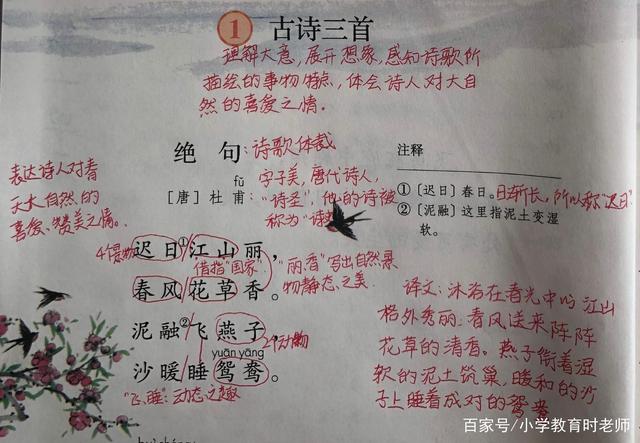 1 古诗三首
理解大意,展开想象,感知诗歌所
描绘的事物特点,体会诗人对大自
然的喜爱之情。
绝 句:诗歌体裁
表达诗人对春
天大自然的
喜爱、赞美之情。
fǔ
[唐] 杜 甫:
字子美,唐代诗人,
“诗圣”,他的诗被
称为“诗
注释
①〔迟日〕春日。日渐长,所以称“迟日”
②〔泥融〕这里指泥土变湿
软。
4个景物
迟日①/江山丽,
借指“国家”
春风/花草香。
“丽、香”写出自然景
物静态之美
泥融②/飞燕子,
2个动物
yuān yāng
沙暖/睡鸳鸯。
“飞、睡”:动态之趣
译文:沐浴在春光中的江山
格外秀丽,春风送来阵阵
花草的清香。燕子衔着湿
软的泥土筑巢,暖和的沙
子上睡着成对的鸳鸯
百家号/小学教育时老师